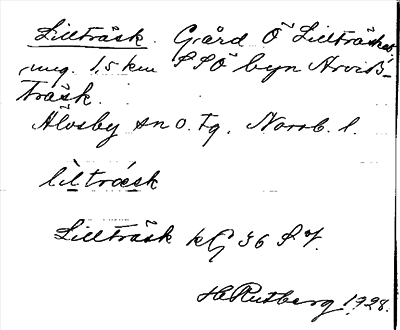 Lillträsk. Gård Ö Lillträsket,
ung. 1,5 km SSÖ byn Arvids-
träsk.
Älvsby sn o. tg, Norrb. l.
lìltræsk
Lillträsk kG 36 S V.
H. Rutberg 1928.